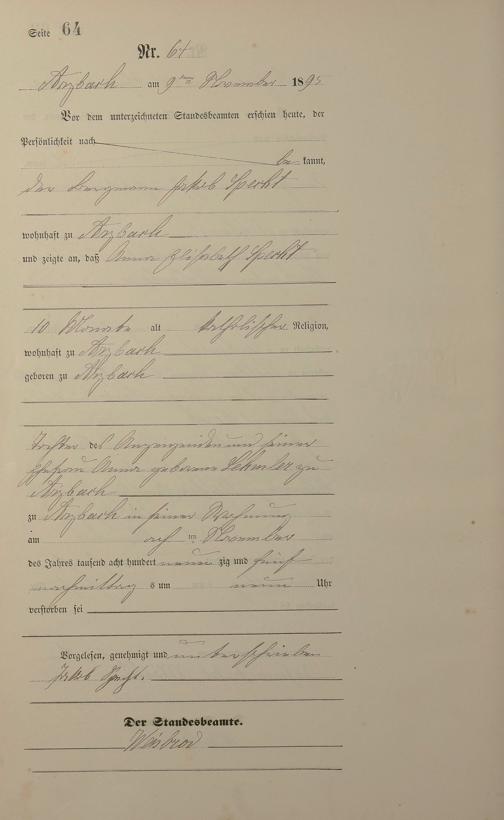 Seite 64
Nr. 64
Arzbach am 9ten November 1895
Vor dem unterzeichneten Standesbeamten erschien heute, der
Persönlichkeit nach
be kannt,
der Bergmann Jakob Specht
wohnhaft zu Arzbach
und zeigte an, daß Anna Elisabeth Specht
10 Monate alt katholischer Religion,
wohnhaft zu Arzbach
geboren zu Arzbach
Tochter des Anzeigenden und seiner
Ehefrau Anna geborene zu
Arzbach
zu Arzbach in seiner Wohnung
am ach ten November
des Jahres tausend acht hundert neun zig und fünf
nachmittag s um neun Uhr
verstorben sei
Vorgelesen, genehmigt und unterschrieben
Jakob Specht.
Der Standesbeamte.
Weisbrod